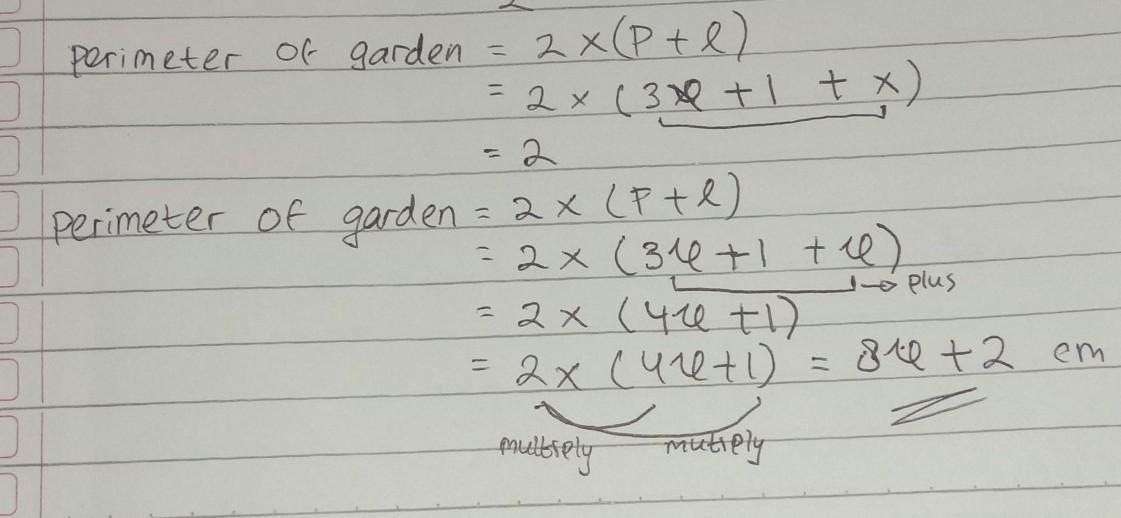 perimeter of garden = 2 × (P + l)
= 2 × (3x + 1 + x)
= 2
perimeter of garden = 2 × (P + l)
= 2 × (3x + 1 + x)
→ plus
= 2 × (4x + 1)
= 2 × (4x + 1) = 8x + 2 cm
multiply mutiply